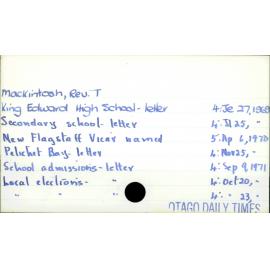 Mackintosh, Rev. T
King Edward High School - letter 4: Je 27, 1969
Secondary school - letter 4: Jl 25, "
New Flagstaff Vicar named 5: Ap 6, 1970
Pelichet Bay. letter 4: Nov 25, "
School admissions - letter 4: Sep 9, 1971
Local elections - " 4: Oct 20, "
" " " 4: " 23, "
OTAGO DAILY TIMES